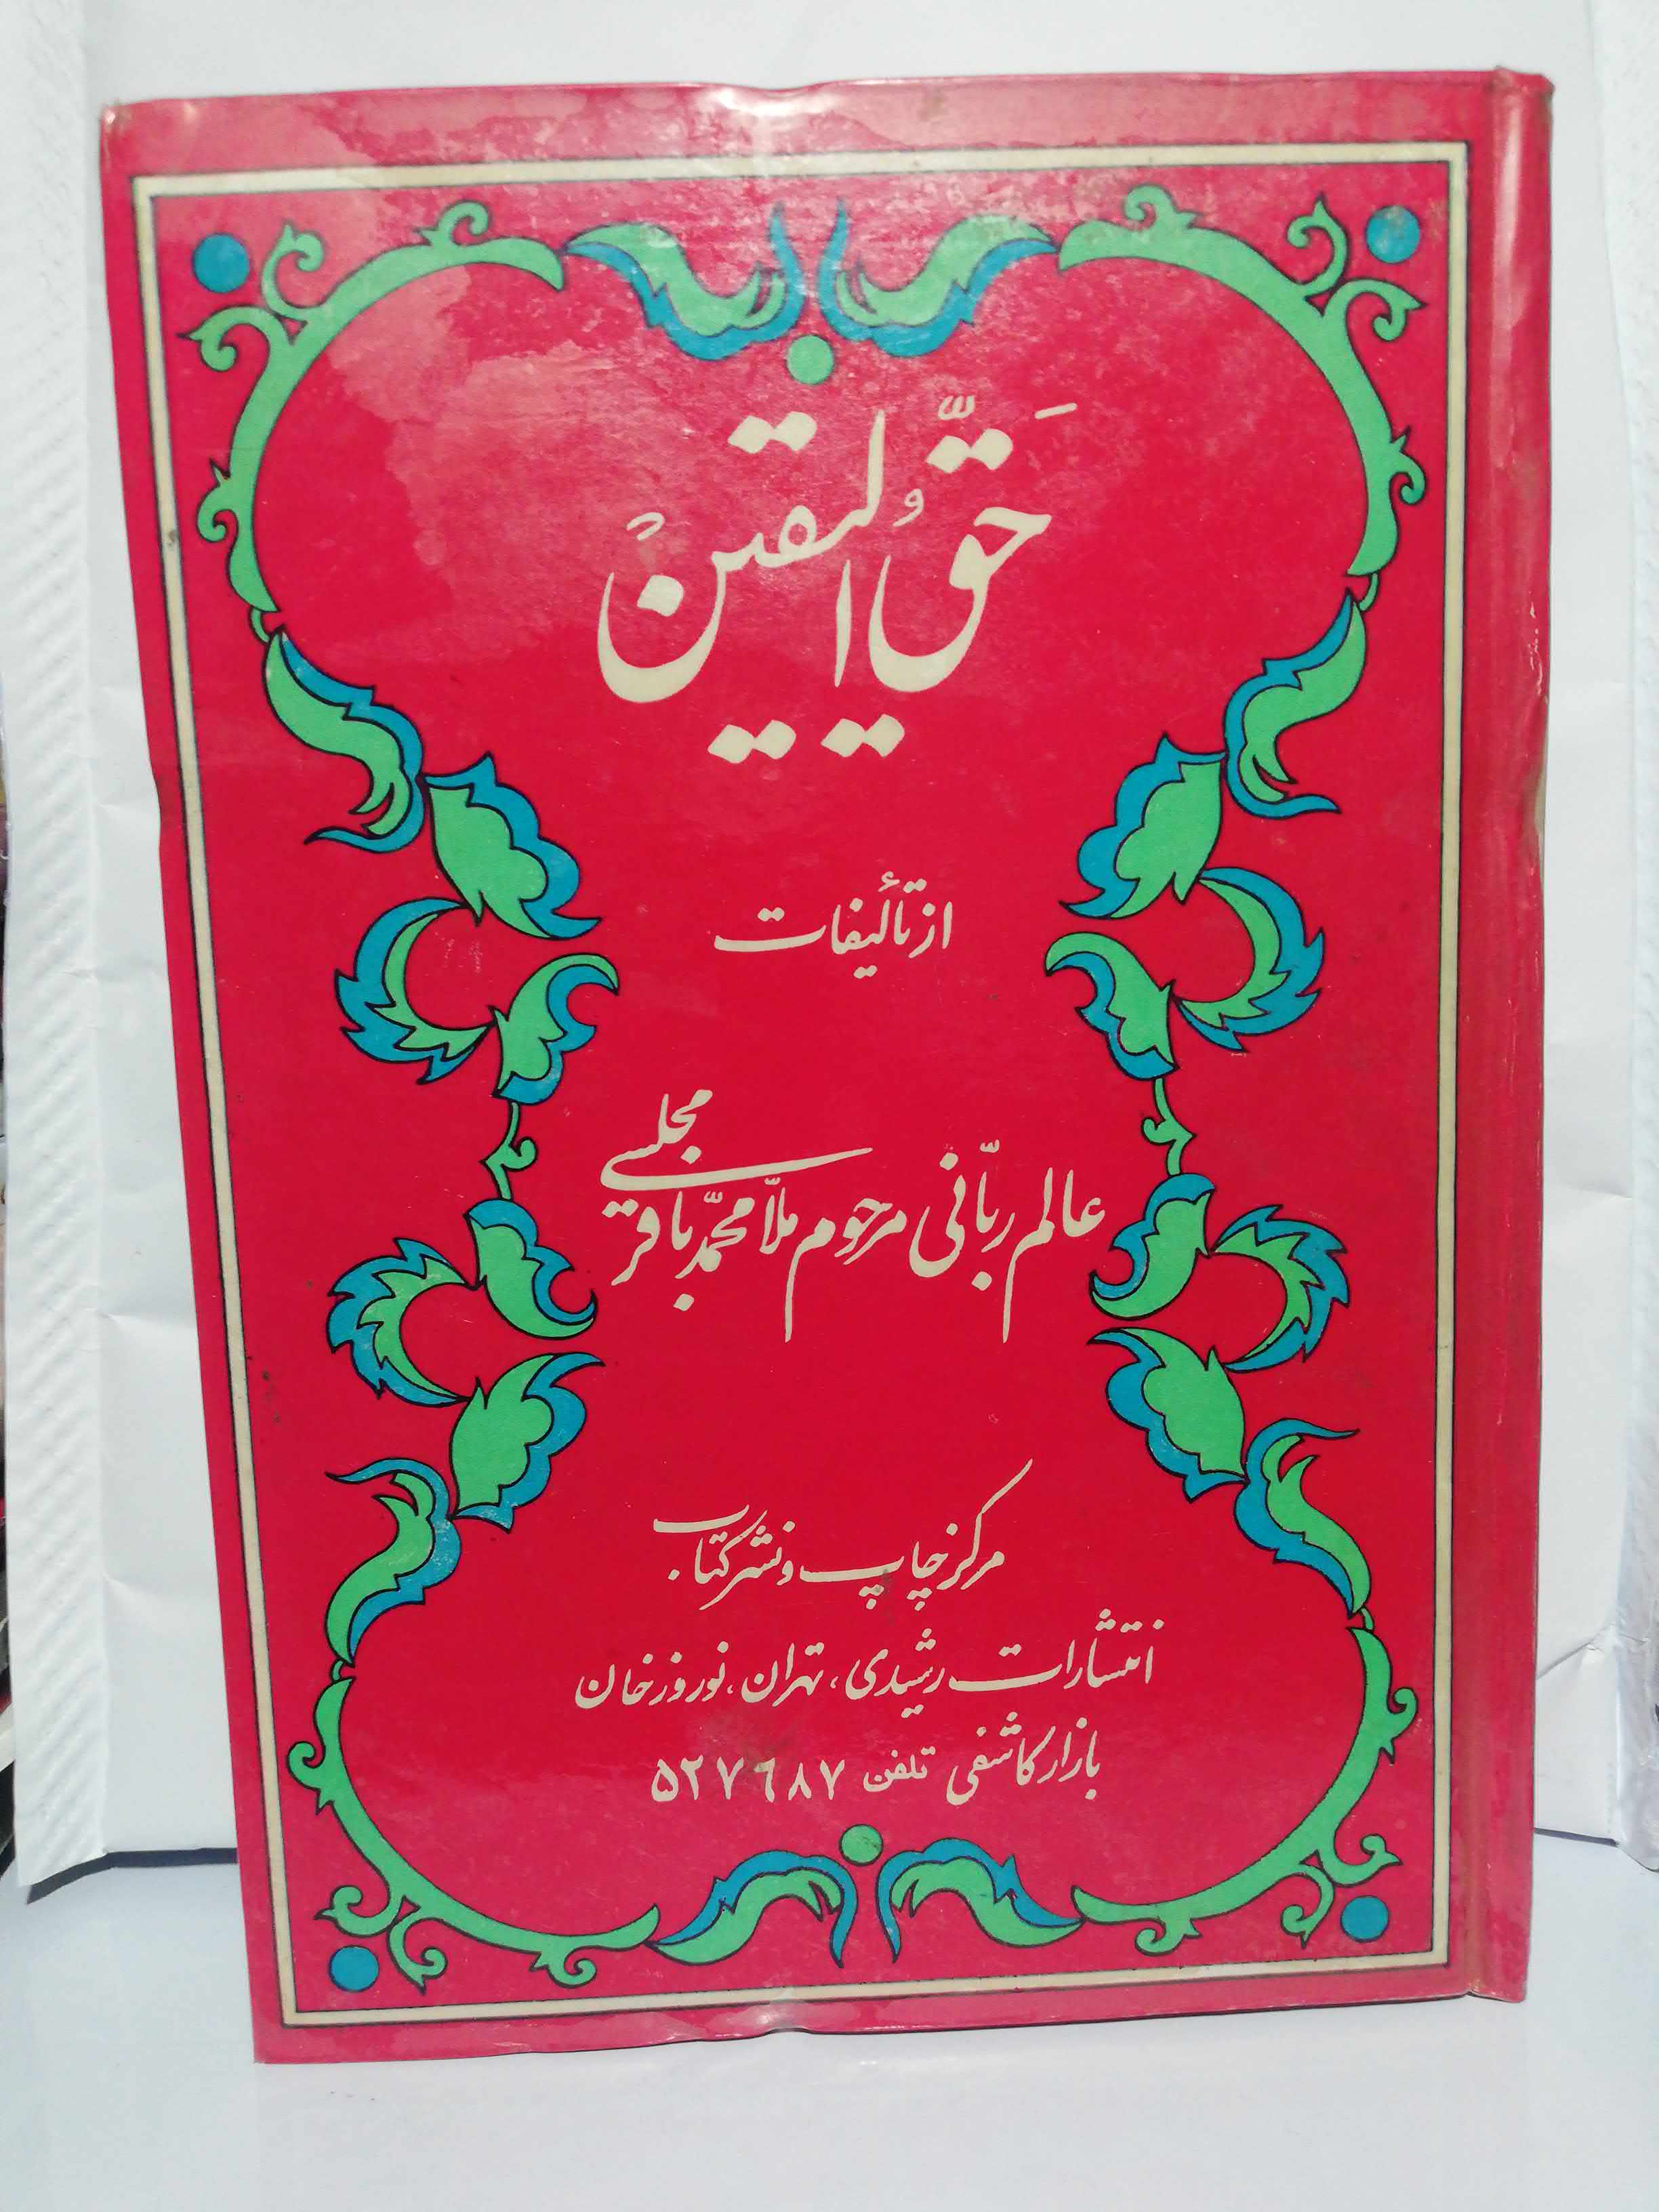 حَقُّ الیقین
از تألیفات
عالم ربّانی مرحوم ملّا محمّد باقر مجلسی
مرکز چاپ و نشر کتاب
انتشارات رشیدی، تهران، نوروزخان
بازار کاشفی تلفن ۵۲۷٦۸۷